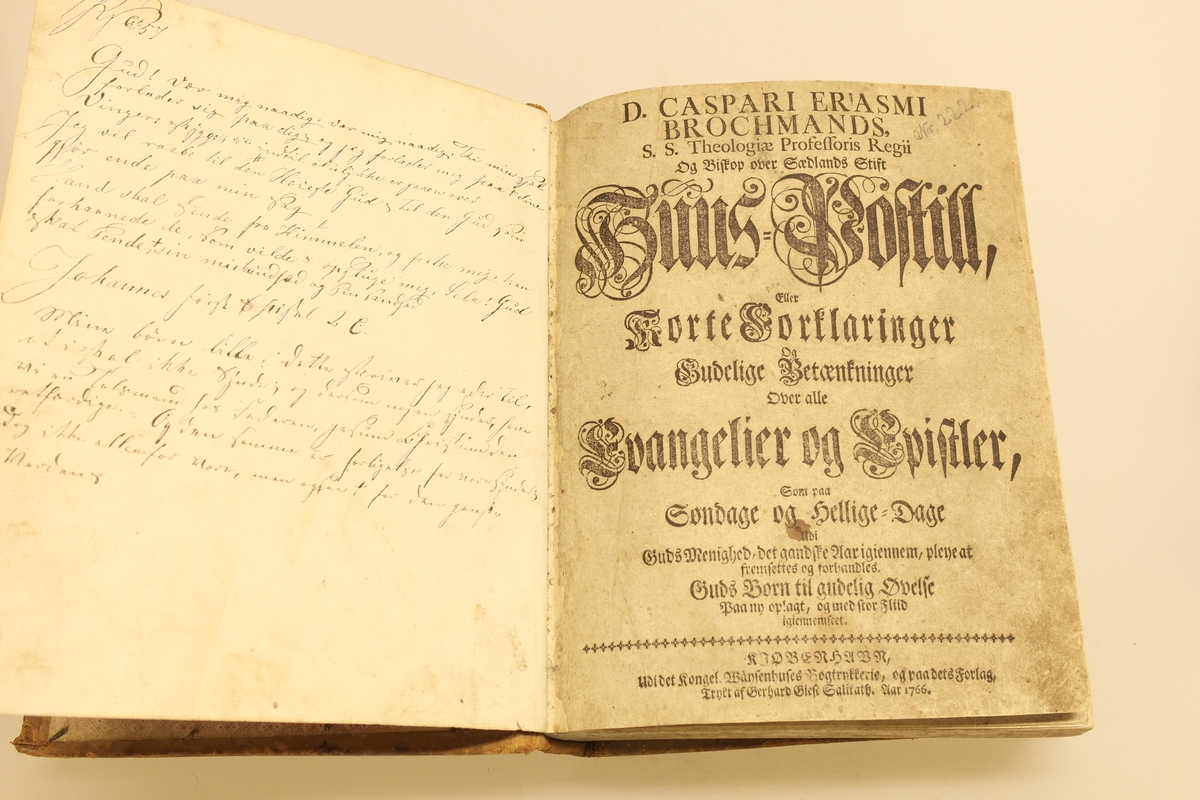 Gud! vær mig naadig: vær mig naadig: Thi min Sæl
forlader sig paa dig, og jeg forlader mig paa dine
Vingers skygge, indtil
Jeg vil raabe til den Høieste Gud, til den Gud som
Gjør ende paa min Sag
Hand skal sende fra Himmelen, og frelse mig, ham
forhaanede de, som vilde opsluge mig, Sela! Gud
skal sende sin miskundhed og sin sandhed
Johannes først Epistel 2 C.
Mine børn lille: dette skriver jeg eder til,
at i skal ikke synde; og dersom nogen synder, have
wi en Talsmand hos Faderen, Jesum Christum den
retfærdige. Og den samme er forligelse for vore synder
dog ikke allene for vore, men ogsaa for den gandske
Verdens
Nr. 222.
D. CASPARI ERASMI
BROCHMANDS,
S. S. Theologiæ Professoris Regii
Og Biskop over Sædlands Stift
Huus-Postill,
Eller
Korte Forklaringer
Og
Gudelige Betænkninger
Over alle
Evangelier og Epistler,
Som paa
Søndage og Hellige-Dage
Udi
Guds Menighed, det gandske Aar igiennem, pleye at
fremsettes og forhandles.
Guds Børn til gudelig Øvelse
Paa ny oplagt, og med stor Fliid
igiennemseet.
KIØBENHAVN,
Udi det Kongel. Wäysenhuses Bogtrykkerie, og paa dets Forlag,
Trykt af Gerhard Giese Salikath. Aar 1766.